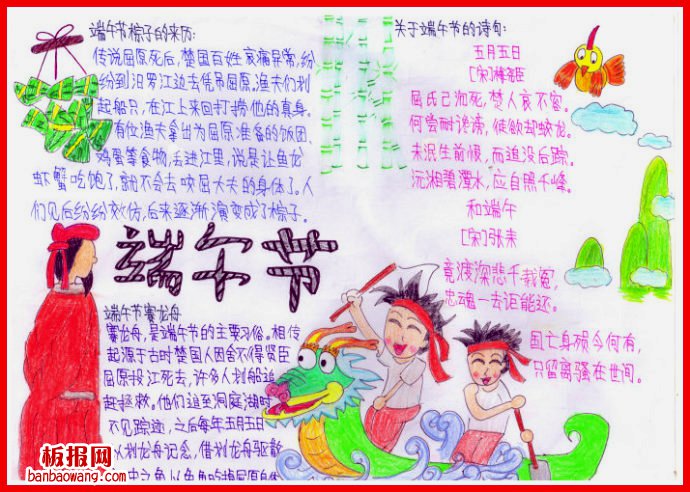 端午节粽子的来历:
传说屈原死后,楚国百姓哀痛异常,纷
纷到汨罗江边去凭吊屈原。渔夫们划
起船只,在江上来回打捞他的真身。
有位渔夫拿出为屈原准备的饭团、
鸡蛋等食物,丢进江里,说是让鱼龙
虾蟹吃饱了,就不会去咬屈大夫的身体了。人
们见后纷纷效仿,后来逐渐演变成了粽子。
端午节
端午节赛龙舟
赛龙舟,是端午节的主要习俗。相传
起源于古时楚国人因舍不得贤臣
屈原投江死去,许多人划船追
赶拯救。他们追至洞庭湖时
不见踪迹,之后每年五月五日
划龙舟纪念,借划龙舟驱散
江中之鱼,以免鱼吃掉屈原身体
关于端午节的诗句:
五月五日
[宋]
屈氏已沉死,楚人哀不容。
何尝奈谗谤,徒欲却蛟龙。
未泯生前恨,而追没后踪。
沅湘碧潭水,应自照千峰。
和端午
[宋]张耒
竞渡深悲千载冤,
忠魂一去讵能还。
国亡身殒今何有,
只留离骚在世间。
板报网
banbaowang.com